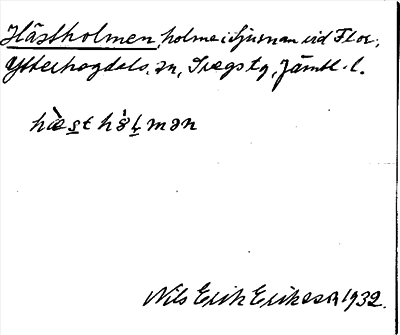 Hästholmen, holme i Ljusnan vid Flor,
Ytterhogdals sn, Svegs tg, Jämtl. l.
hæ̀st hɔ̀ḷmən
Nils Erik Erikson 1932.